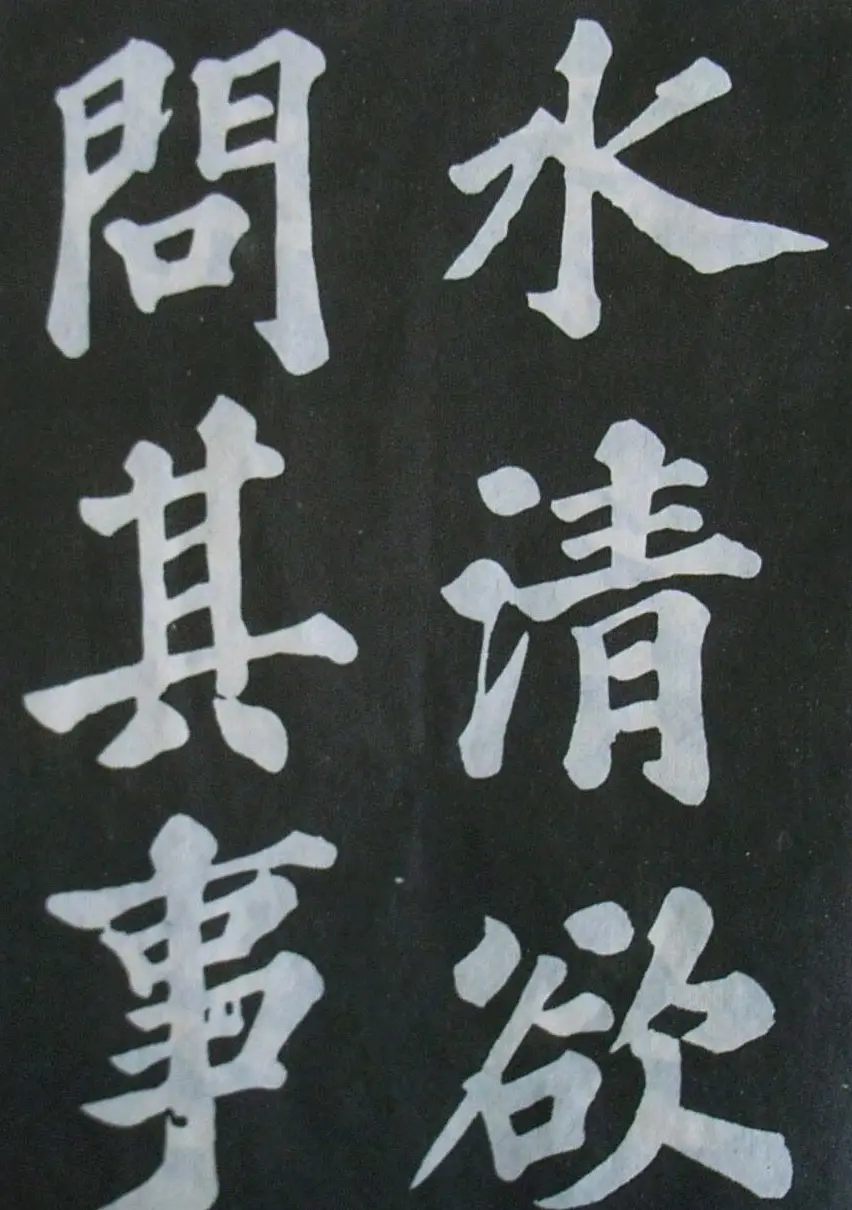 水清欲
問其事